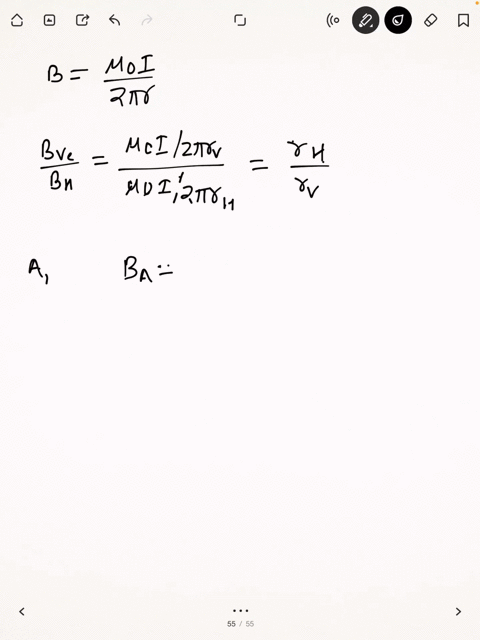 B = μ0I / 2πr
BVe / BH = μ0I/2πrV / μ0I/2πrH = rH / rV
A, BA =
55 / 55